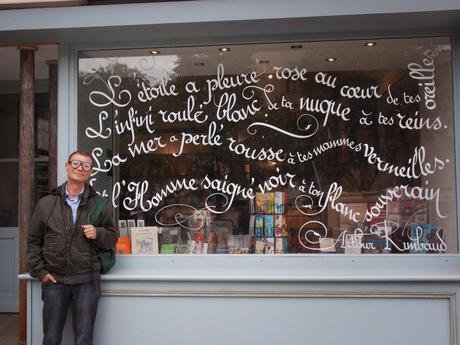 L'étoile a pleuré rose au cœur de tes oreilles,
L'infini roulé blanc de ta nuque à tes reins.
La mer a perlé rousse à tes mammes vermeilles.
et l'Homme saigné noir à ton flanc souverain
Arthur Rimbaud